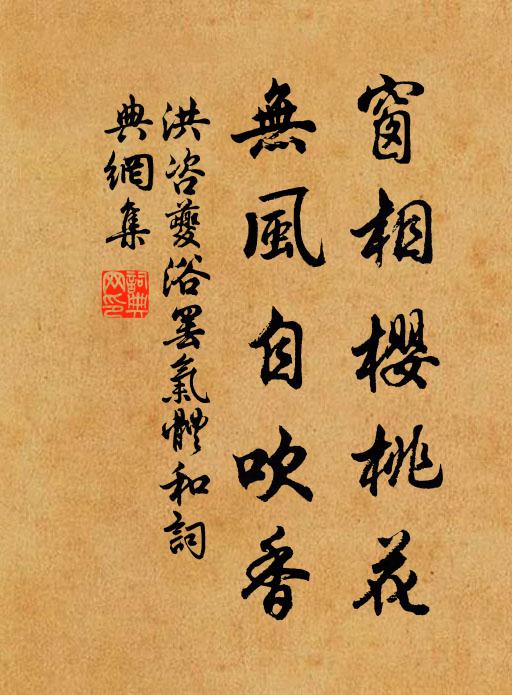 窗相櫻桃花
無風自吹香
洪咨夔浴罢氣體和詞
典網集
詞典
网印